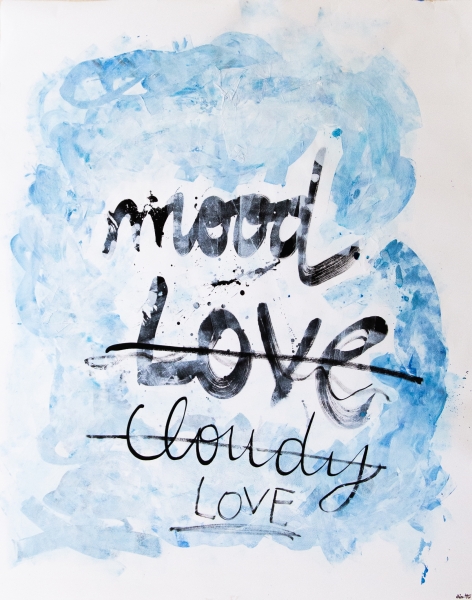 mood
Love
Cloudy
LOVE